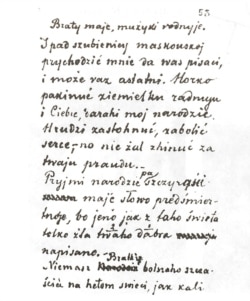 53
Braty maje, mużyki rodnyje.
Z pad szubienicy maskouskoj
prychodzić mnie da was pisaci,
i może raz astatni. Horko
pakinuć ziemielku rodnuju
i Ciebie, darahi moj narodzie.
Hrudzi zastohnuć, zabolić
serce, — no nie żal zhinuć za
twaju praudu.—
Pryjmi narodzie pa szczyrosci
maje słowo predśmiert-
noje, bo jeno jak z taho świeta
tolko dla twaho dabra
napisano.
Bratké
Niemasz bolszaho szcza-
ścia na hetom świeci, jak kali